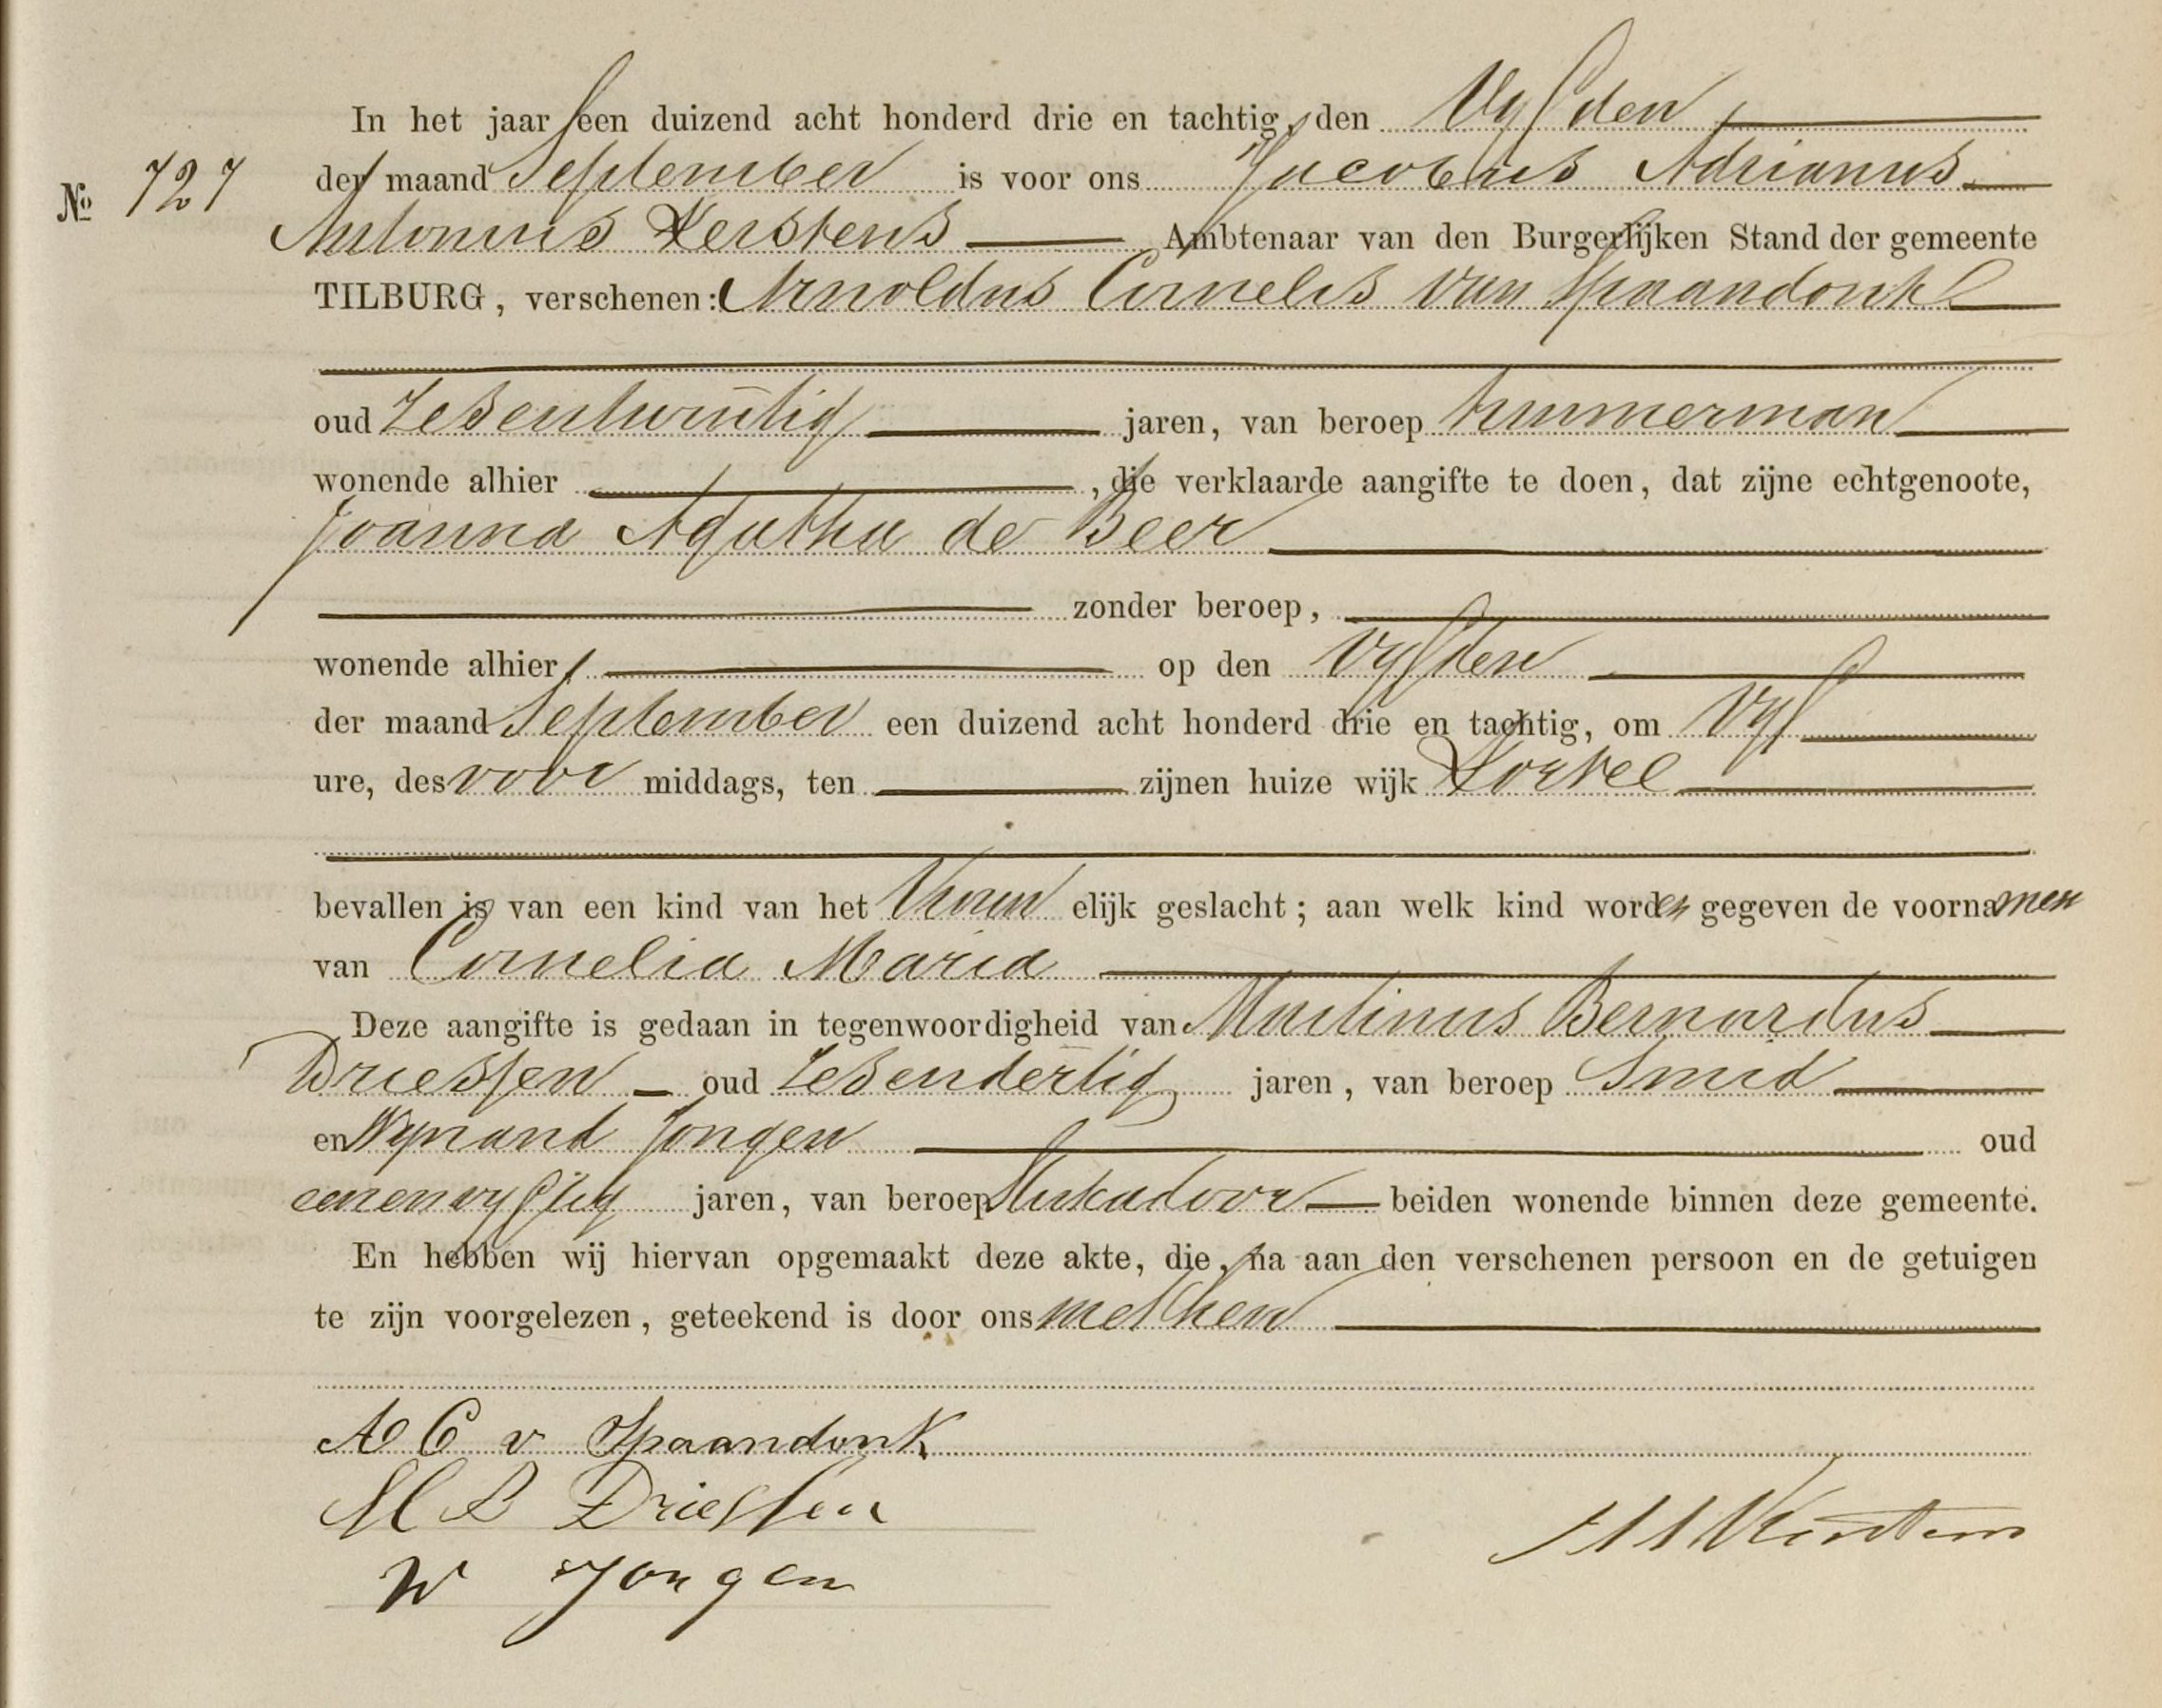 In het jaar een duizend acht honderd drie en tachtig, den Vyfden
No 727 der maand September is voor ons Jacobus Adrianus
Antonius Kerstens Ambtenaar van den Burgerlijken Stand der gemeente
TILBURG, verschenen: Arnoldus Cornelis van Spaandonk
oud Zesentwintig jaren, van beroep timmerman
wonende alhier , die verklaarde aangifte te doen, dat zijne echtgenoote,
Joanna Agatha de Beer
zonder beroep,
wonende alhier, op den Vyfden
der maand September een duizend acht honderd drie en tachtig, om Vyf
ure, des voor middags, ten zijnen huize wijk Korvel
bevallen is van een kind van het Vrouw elijk geslacht; aan welk kind worden gegeven de voornamen
van Cornelia Maria
Deze aangifte is gedaan in tegenwoordigheid van Martinus Bernardus
Driessen oud Zesendertig jaren, van beroep Smid
en Wynand Jongen oud
eenenvyftig jaren, van beroep Stukadoor beiden wonende binnen deze gemeente.
En hebben wij hiervan opgemaakt deze akte, die, na aan den verschenen persoon en de getuigen
te zijn voorgelezen, geteekend is door ons met hen
A C v Spaandonk
M B Driessen
W Jongen
Kerstens